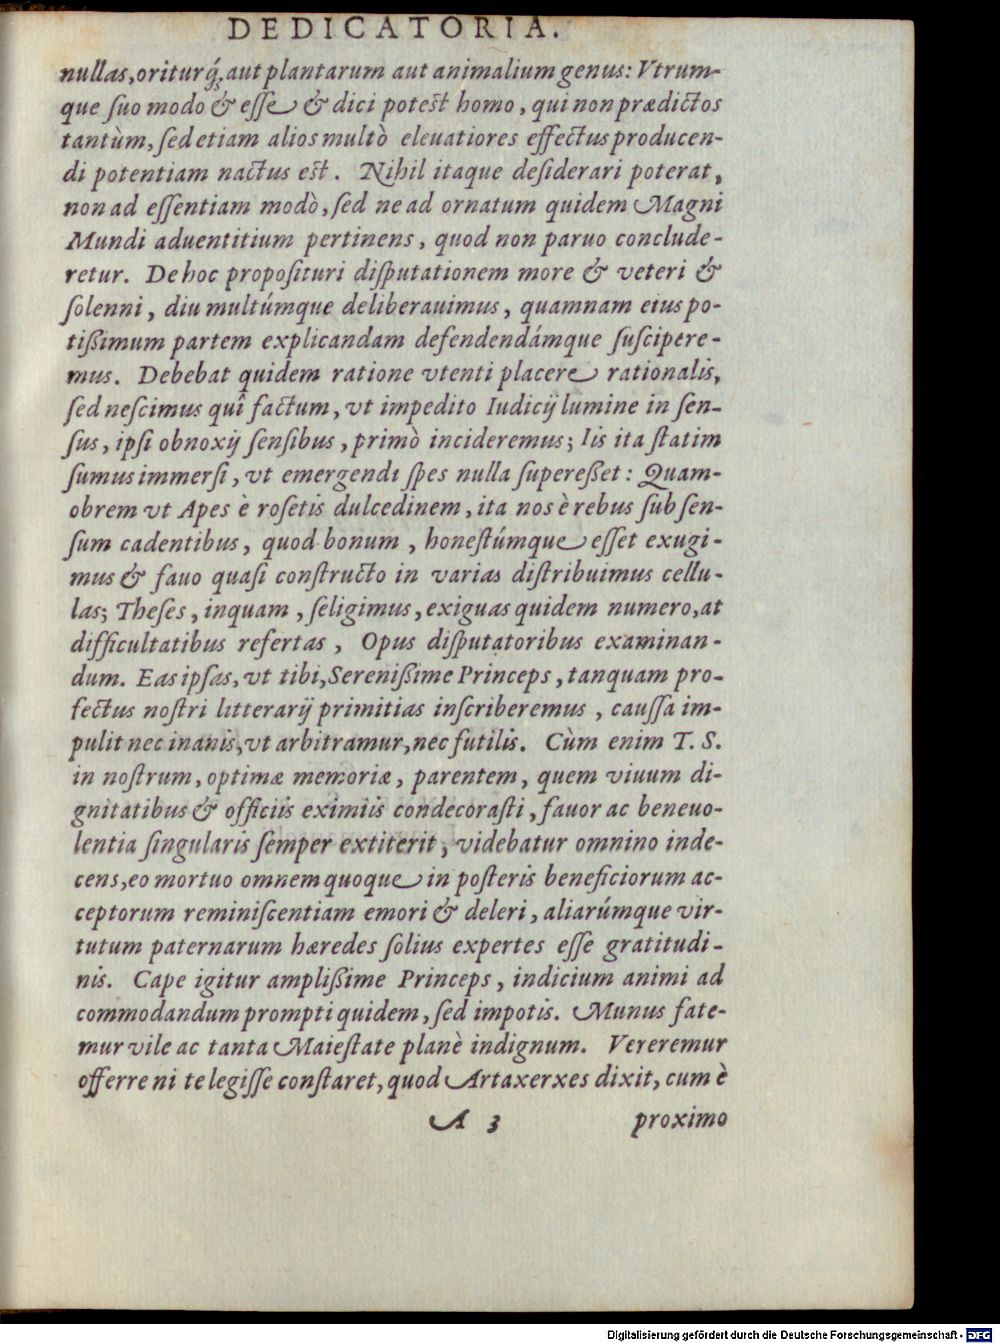 DEDICATORIA.
nullas, oriturq́; aut plantarum aut animalium genus: Vtrum-
que suo modo & esse & dici potest homo, qui non prædictos
tantùm, sed etiam alios multò eleuatiores effectus producen-
di potentiam nactus est. Nihil itaque desiderari poterat,
non ad essentiam modò, sed ne ad ornatum quidem Magni
Mundi aduentitium pertinens, quod non paruo conclude-
retur. De hoc proposituri disputationem more & veteri &
solenni, diu multúmque deliberauimus, quamnam eius po-
tißimum partem explicandam defendendámque suscipere-
mus. Debebat quidem ratione vtenti placere rationalis,
sed nescimus quî factum, vt impedito Iudicij lumine in sen-
sus, ipsi obnoxij sensibus, primò incideremus; Iis ita statim
sumus immersi, vt emergendi spes nulla supereßet: Quam-
obrem vt Apes è rosetis dulcedinem, ita nos è rebus sub sen-
sum cadentibus, quod bonum, honestúmque esset exugi-
mus & fauo quasi constructo in varias distribuimus cellu-
las; Theses, inquam, seligimus, exiguas quidem numero, at
difficultatibus refertas, Opus disputatoribus examinan-
dum. Eas ipsas, vt tibi, Serenißime Princeps, tanquam pro-
fectus nostri litterarij primitias inscriberemus, caussa im-
pulit nec inanis, vt arbitramur, nec futilis. Cùm enim T. S.
in nostrum, optimæ memoriæ, parentem, quem viuum di-
gnitatibus & officiis eximiis condecorasti, fauor ac beneuo-
lentia singularis semper extiterit, videbatur omnino inde-
cens, eo mortuo omnem quoque in posteris beneficiorum ac-
ceptorum reminiscentiam emori & deleri, aliarúmque vir-
tutum paternarum hæredes solius expertes esse gratitudi-
nis. Cape igitur amplißime Princeps, indicium animi ad
commodandum prompti quidem, sed impotis. Munus fate-
mur vile ac tanta Maiestate planè indignum. Vereremur
offerre ni te legisse constaret, quod Artaxerxes dixit, cum è
A 3 proximo
Digitalisierung gefördert durch die Deutsche Forschungsgemeinschaft - DFG